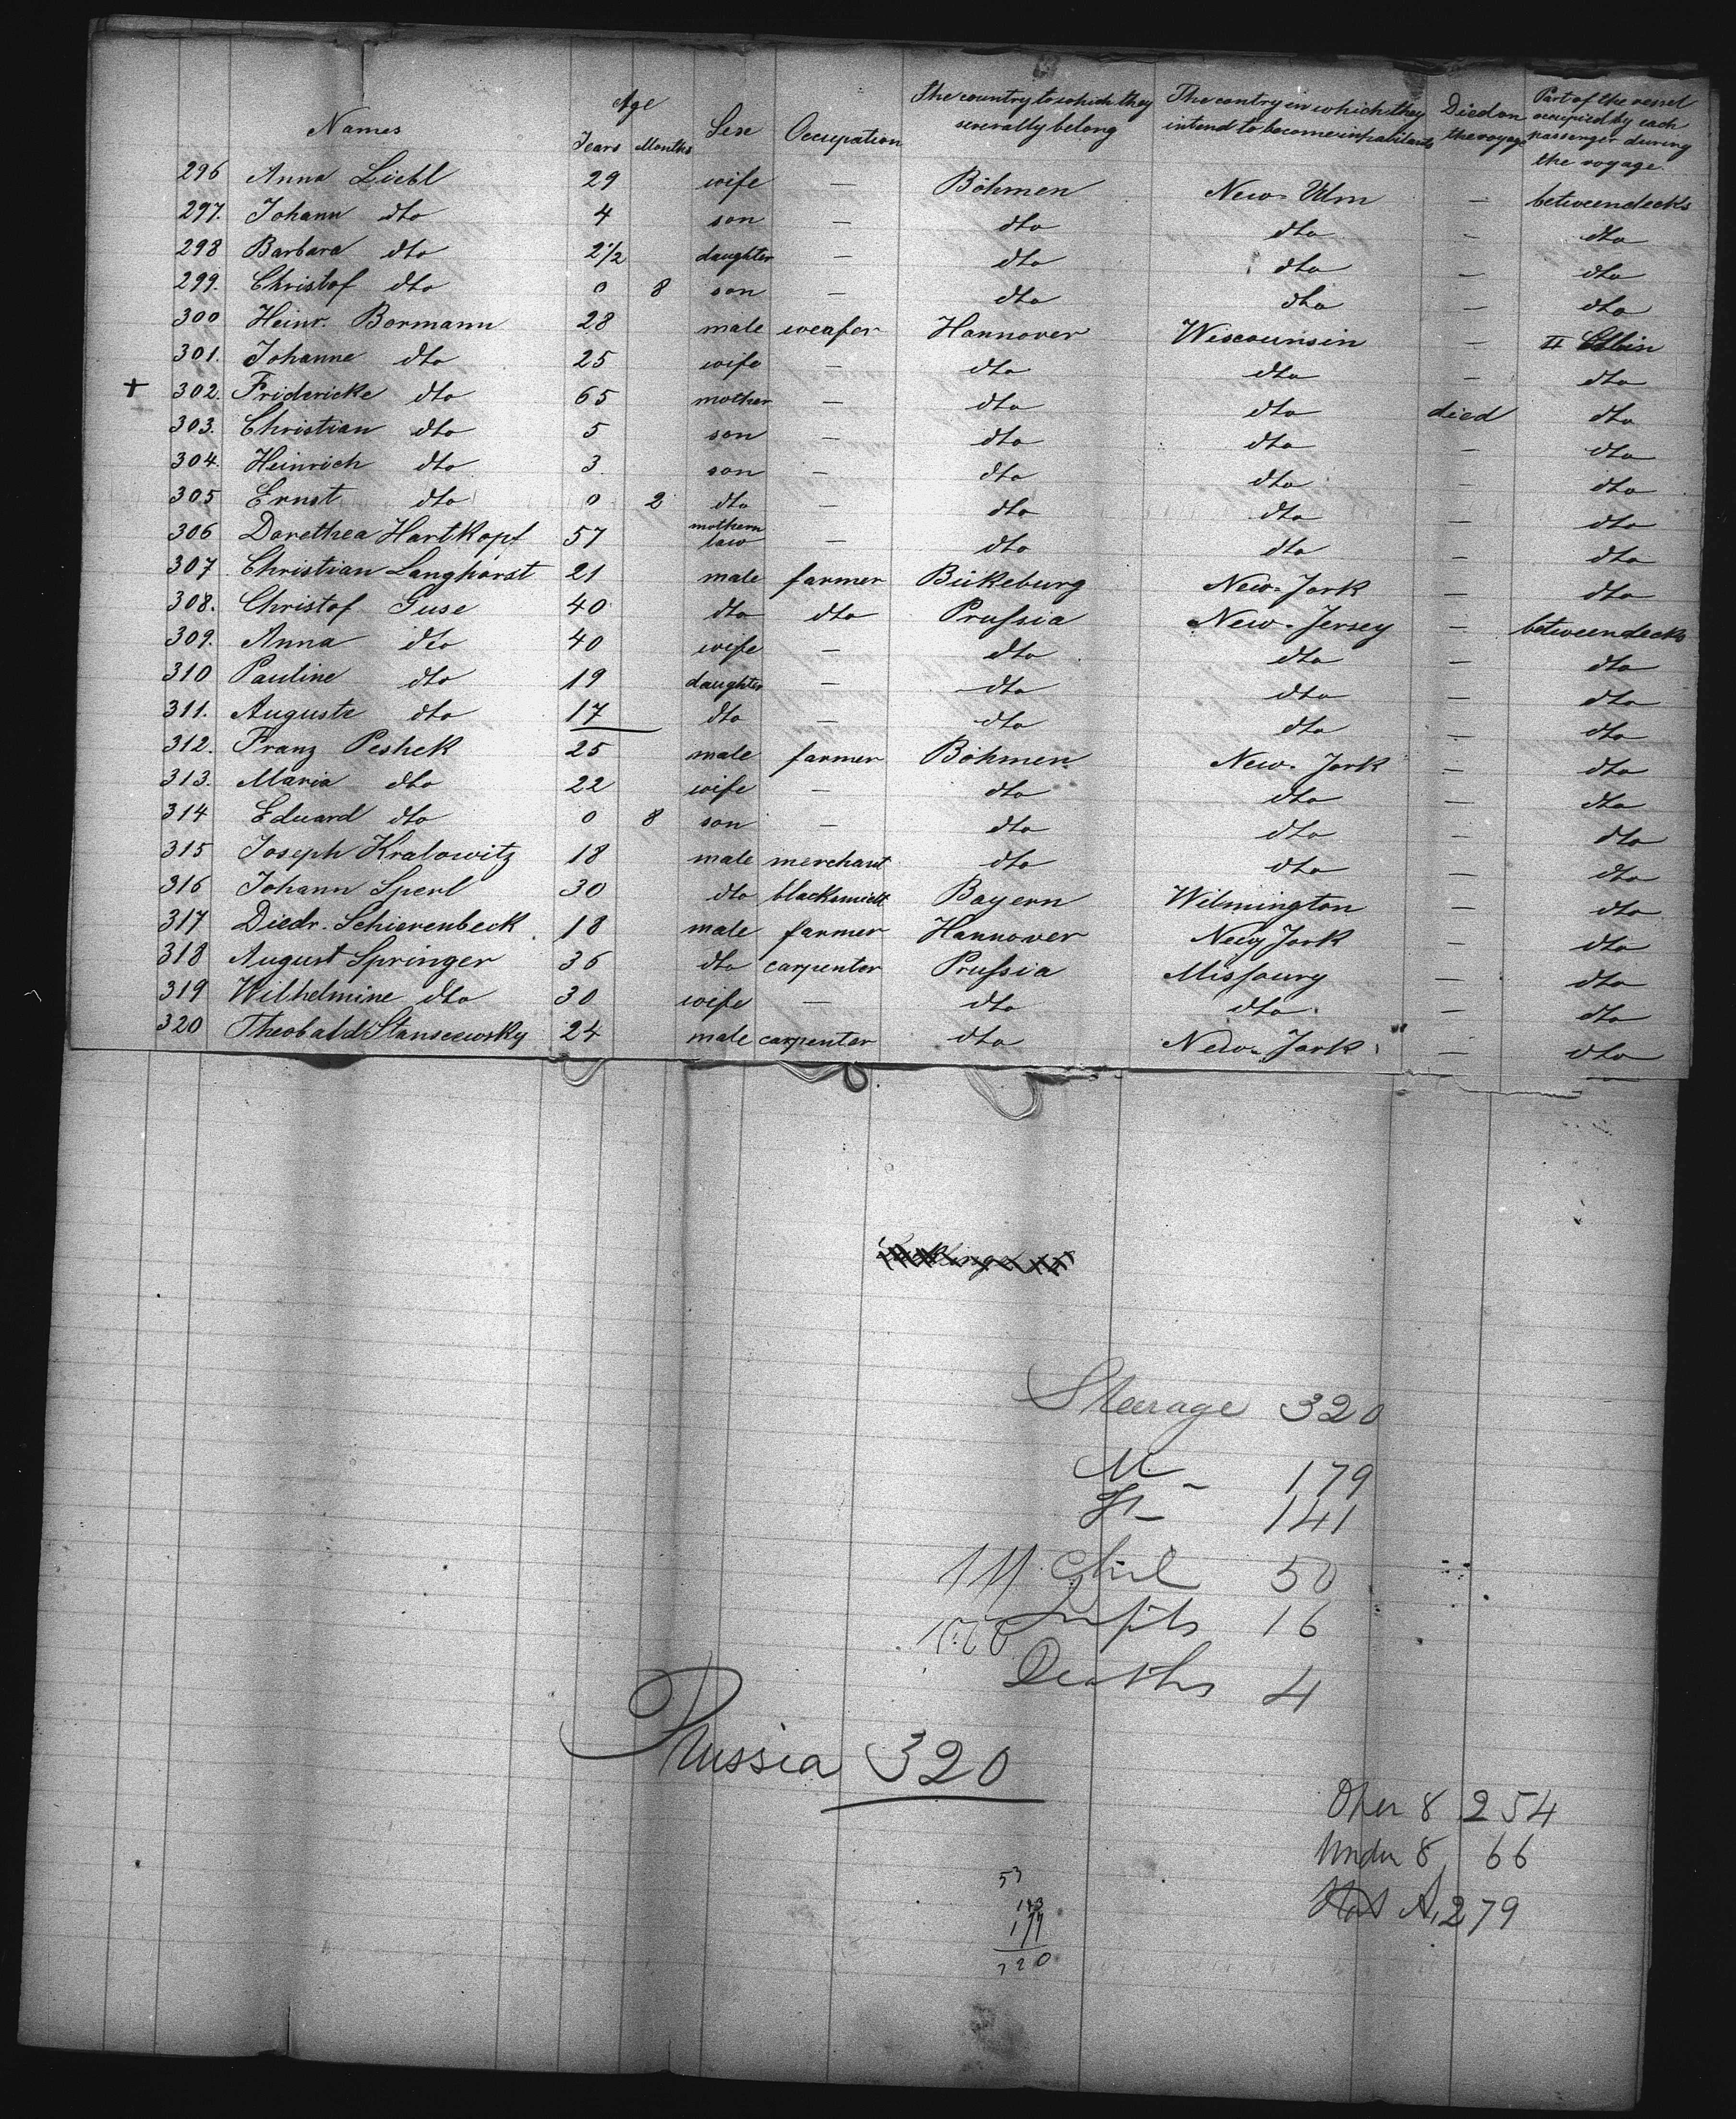 Names Age Years Months Sex Occupation The country to which they severally belong The contry in which they intend to become inhabitants Died on the voyage Part of the vessel occupied by each passenger during the voyage.
296 Anna Liebl 29 wife — Böhmen New-Ulm — betweendecks
297. Johann dto 4 son — dto dto — dto
298 Barbara dto 2 1/2 daughter — dto dto — dto
299. Christof dto 0 8 son — dto dto — dto
300 Heinr. Bormann 28 male weafer Hannover Wiscounsin — II
301. Johanne dto 25 wife — dto dto — dto
+ 302. Fridericke dto 65 mother — dto dto died dto
303. Christian dto 5 son — dto dto — dto
304. Heinrich dto 3. son — dto dto — dto
305 Ernst dto 0 2 dto — dto dto — dto
306 Dorethea Hartkopf 57 mothern law — dto dto — dto
307. Christian Langhorst 21 male farmer Bükeburg New-York — dto
308. Christof Guse 40 dto dto Prussia New-Jersey — betweendecks
309. Anna dto 40 wife — dto dto — dto
310 Pauline dto 19 daughter — dto dto — dto
311. Auguste dto 17 dto — dto dto — dto
312. Franz Peshek 25 male farmer Böhmen New-York — dto
313. Maria dto 22 wife — dto dto — dto
314 Eduard dto 0 8 son — dto dto — dto
315 Joseph Kralowitz 18 male merchant dto dto — dto
316 Johann Sperl 30 dto blacksmidt Bayern Wilmington — dto
317 Diedr. Schierenbeck 18 male farmer Hannover New York — dto
318 August Springer 36 dto carpenter Prussia Missoury — dto
319 Wilhelmine dto 30 wife — dto dto — dto
320 Theobald Stanseewsky 24 male carpenter dto New-York — dto
Stearage 320
M — 179
F — 141
Chil 50
Infts 16
Deaths 4
Prussia 320
Over 8 254
Under 8 66
A, 279
53
143
177
320